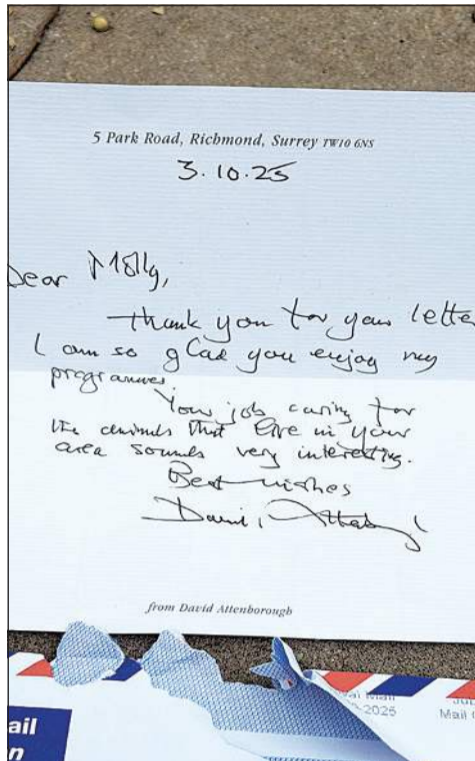 5 Park Road, Richmond, Surrey TW10 6NS
3.10.25
Dear Molly,
Thank you for your letter
I am so glad you enjoy my
programmes.
Your job caring for
the animals that live in your
area sounds very interesting.
Best wishes
David Attenborough
from David Attenborough
Mail
-2025
Mail
ail
n